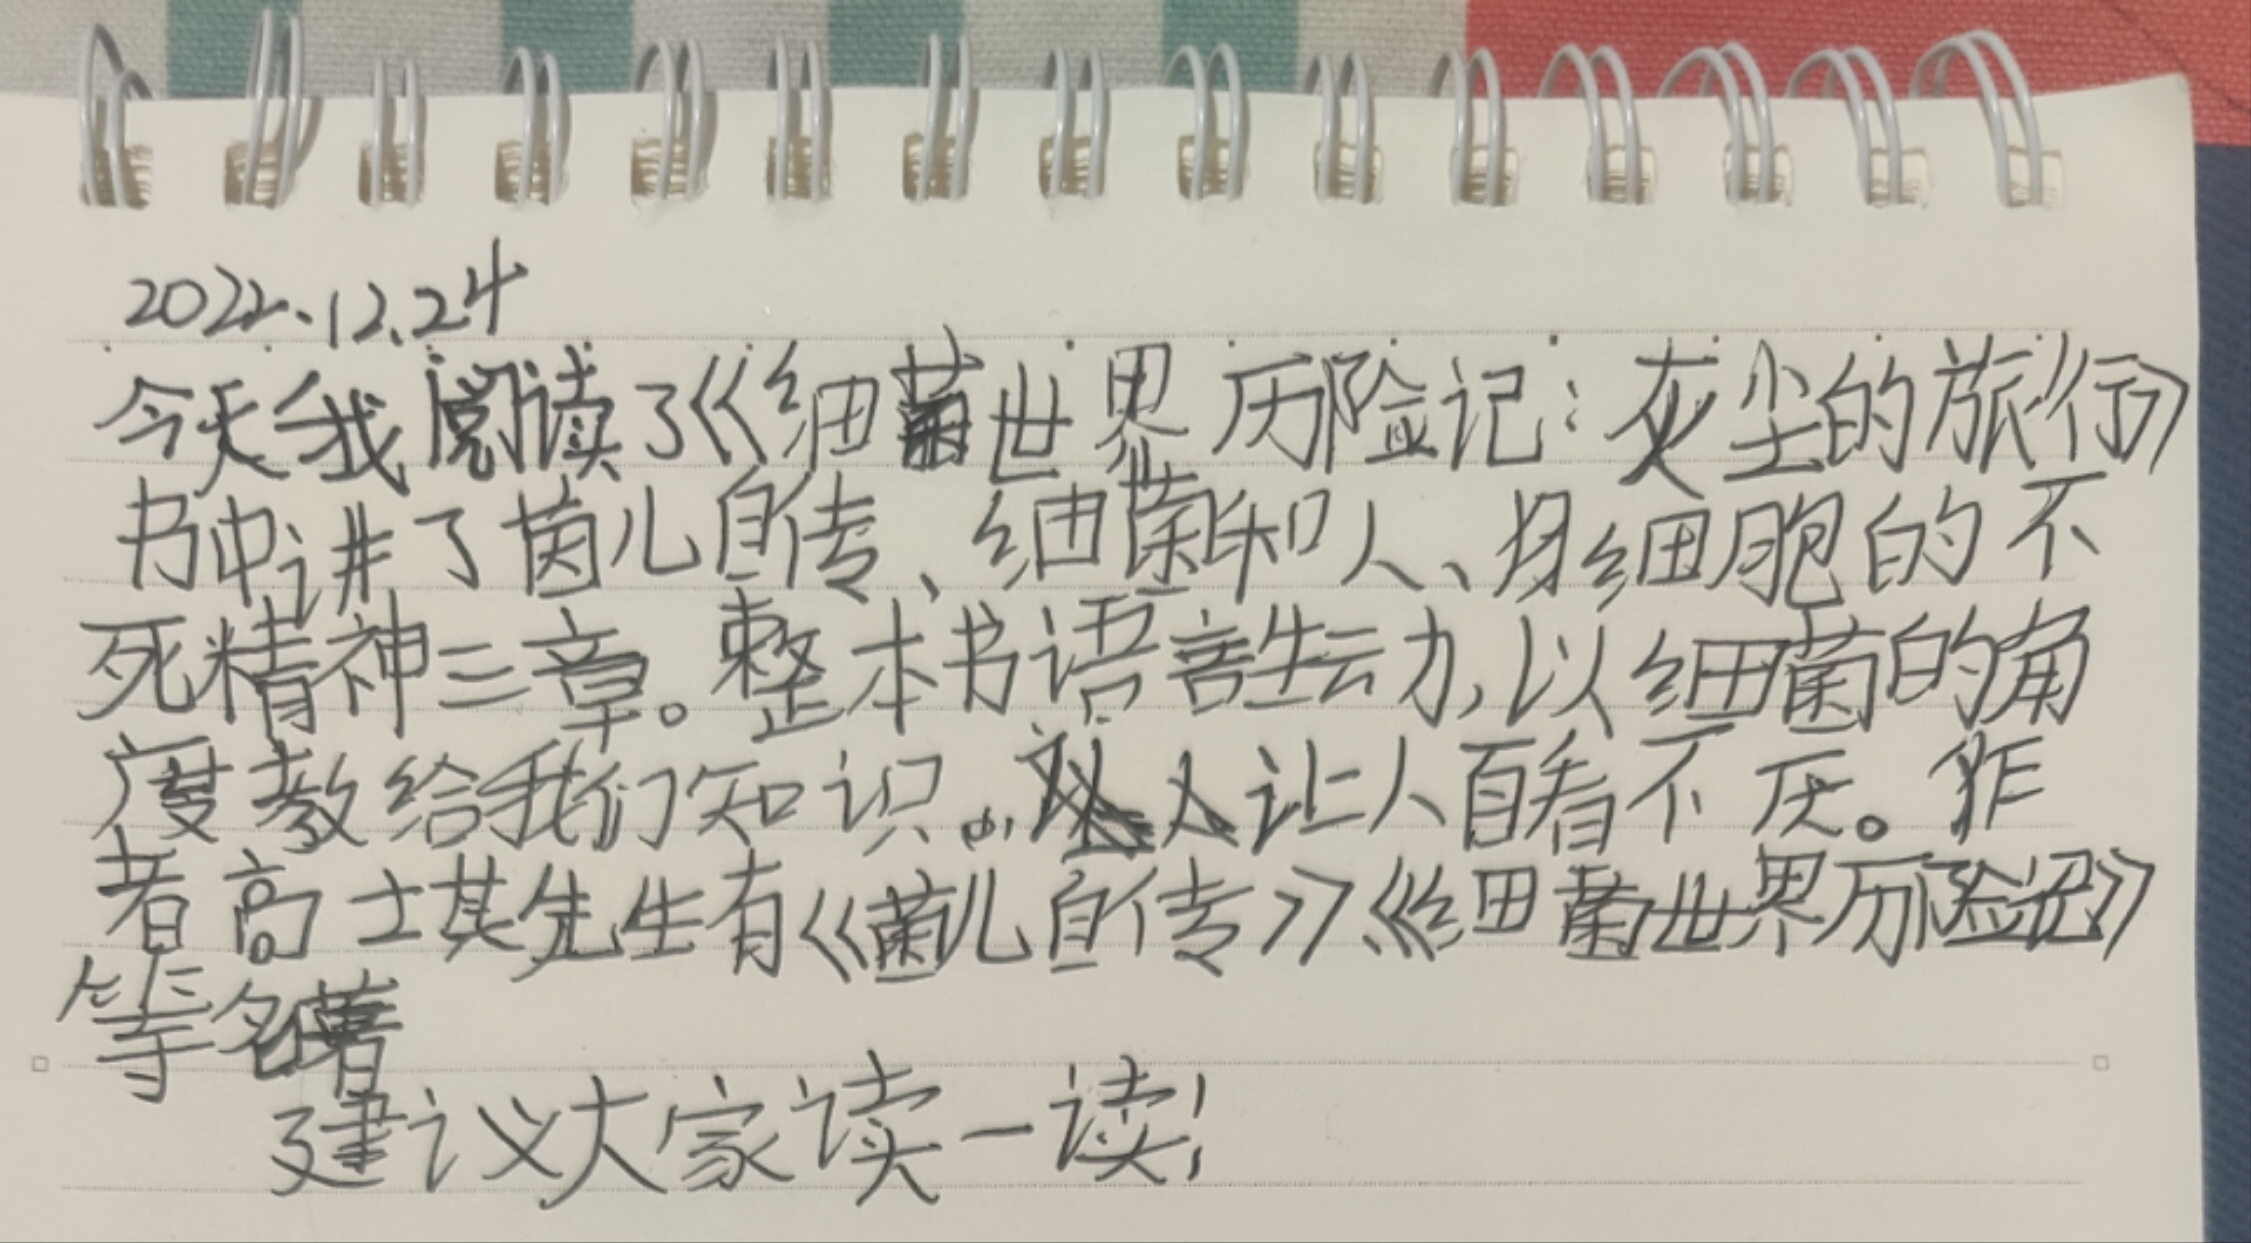 2022.12.24
今天我阅读了《细菌世界历险记：灰尘的旅行》
书中讲了菌儿自传、细菌和人、身细胞的不
死精神三章。整本书语言生动，以细菌的角
度教给我们知识。让人百看不厌。作
者高士其先生有《菌儿自传》、《细菌世界历险记》
等名著
建议大家读一读！